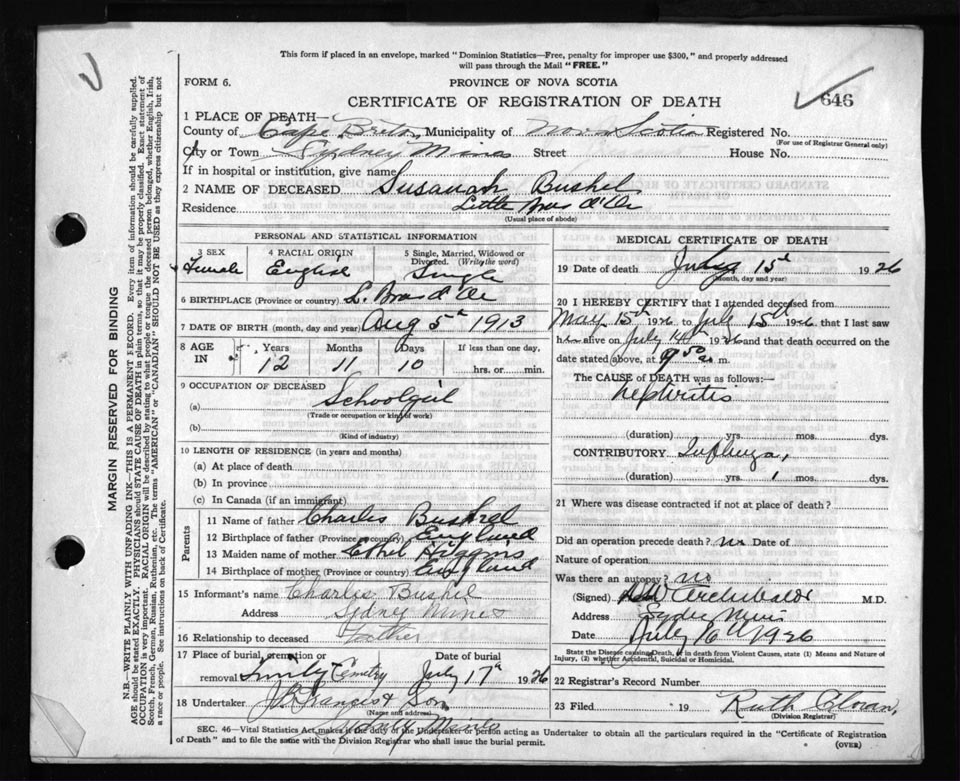 This form if placed in an envelope, marked "Dominion Statistics—Free, penalty for improper use $300," and properly addressed
will pass through the Mail "FREE."
FORM 6.
PROVINCE OF NOVA SCOTIA
CERTIFICATE OF REGISTRATION OF DEATH
646
1 PLACE OF DEATH—
County of Cape Breton, Municipality of Nova Scotia Registered No.
(For use of Registrar General only)
City or Town Sydney Mines Street House No.
If in hospital or institution, give name
2 NAME OF DECEASED Susanah Bushel
Residence Little Bras d'Or
(Usual place of abode)
MARGIN RESERVED FOR BINDING
N.B.—WRITE PLAINLY WITH UNFADING INK—THIS IS A PERMANENT RECORD. Every item of information should be carefully supplied.
AGE should be stated EXACTLY. PHYSICIANS should STATE CAUSE OF DEATH in plain terms, so that it may be properly classified. Exact statement of
OCCUPATION is very important. RACIAL ORIGIN will be described by stating to what people or tongue the deceased person belonged, whether English, Irish,
Scotch, French, German, Russian, Ruthenian, etc. The terms "AMERICAN" or "CANADIAN" SHOULD NOT BE USED as they express citizenship but not
a race or people. See instructions on back of Certificate.
PERSONAL AND STATISTICAL INFORMATION
3 SEX
Female
4 RACIAL ORIGIN
English
5 Single, Married, Widowed or
Divorced. (Write the word)
Single
6 BIRTHPLACE (Province or country) L. Bras d'Or
7 DATE OF BIRTH (month, day and year) Aug 5th 1913
8 AGE
IN
Years Months Days If less than one day,
12 11 10 hrs. or min.
9 OCCUPATION OF DECEASED
(a) Schoolgirl
(Trade or occupation or kind of work)
(b)
(Kind of industry)
10 LENGTH OF RESIDENCE (in years and months)
(a) At place of death
(b) In province
(c) In Canada (if an immigrant)
Parents
11 Name of father Charles Bushel
12 Birthplace of father (Province or country) England
13 Maiden name of mother Ethel Higgins
14 Birthplace of mother (Province or country) England
15 Informant's name Charles Bushel
Address Sydney Mines
16 Relationship to deceased Father
17 Place of burial, cremation or Date of burial
removal Trinity Cemetry July 17th 1926
18 Undertaker & Son
(Name and address)
Sydney Mines
MEDICAL CERTIFICATE OF DEATH
19 Date of death July 15th 1926
(Month, day and year)
20 I HEREBY CERTIFY that I attended deceased from
May 15th 1926 to July 15th 1926, that I last saw
her alive on July 14th 1926 and that death occurred on the
date stated above, at 9.50 a. m.
The CAUSE of DEATH was as follows:—
Nephritis
(duration) yrs. mos. dys.
CONTRIBUTORY Influenza,
(duration) yrs. 1 mos. dys.
21 Where was disease contracted if not at place of death?
Did an operation precede death? no Date of
Nature of operation
Was there an autopsy? no
(Signed) Archibald M.D.
Address Sydney Mines
Date July 16th 1926
State the Disease causing Death, or in death from Violent Causes, state (1) Means and Nature of
Injury, (2) whether Accidental, Suicidal or Homicidal.
22 Registrar's Record Number
23 Filed 19 Ruth
(Division Registrar)
SEC. 46—Vital Statistics Act makes it the duty of the Undertaker or person acting as Undertaker to obtain all the particulars required in the "Certificate of Registration
of Death" and to file the same with the Division Registrar who shall issue the burial permit.
(OVER)